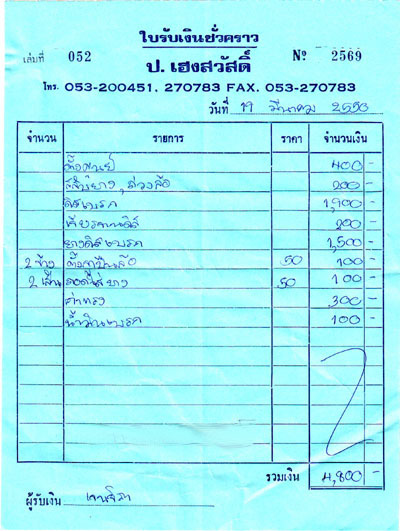 ใบรับเงินชั่วคราว
เล่มที่ 052 Nº 2569
ป. เฮงสวัสดิ์
โทร. 053-200451, 270783 FAX. 053-270783
วันที่ 19 มีนาคม 2550
จำนวน รายการ ราคา จำนวนเงิน
ตั้งศูนย์ 400 -
สลับยาง, ถ่วงล้อ 200 -
ดิสเบรค 1,900 -
เจียรจานดิส 200 -
ยางดิสเบรค 1,500 -
2 ข้าง 50 100 -
2 เส้น ถอดใส่ยาง 50 100 -
ค่าแรง 300 -
น้ำมันเบรค 100 -
รวมเงิน 4,800 -
ผู้รับเงิน